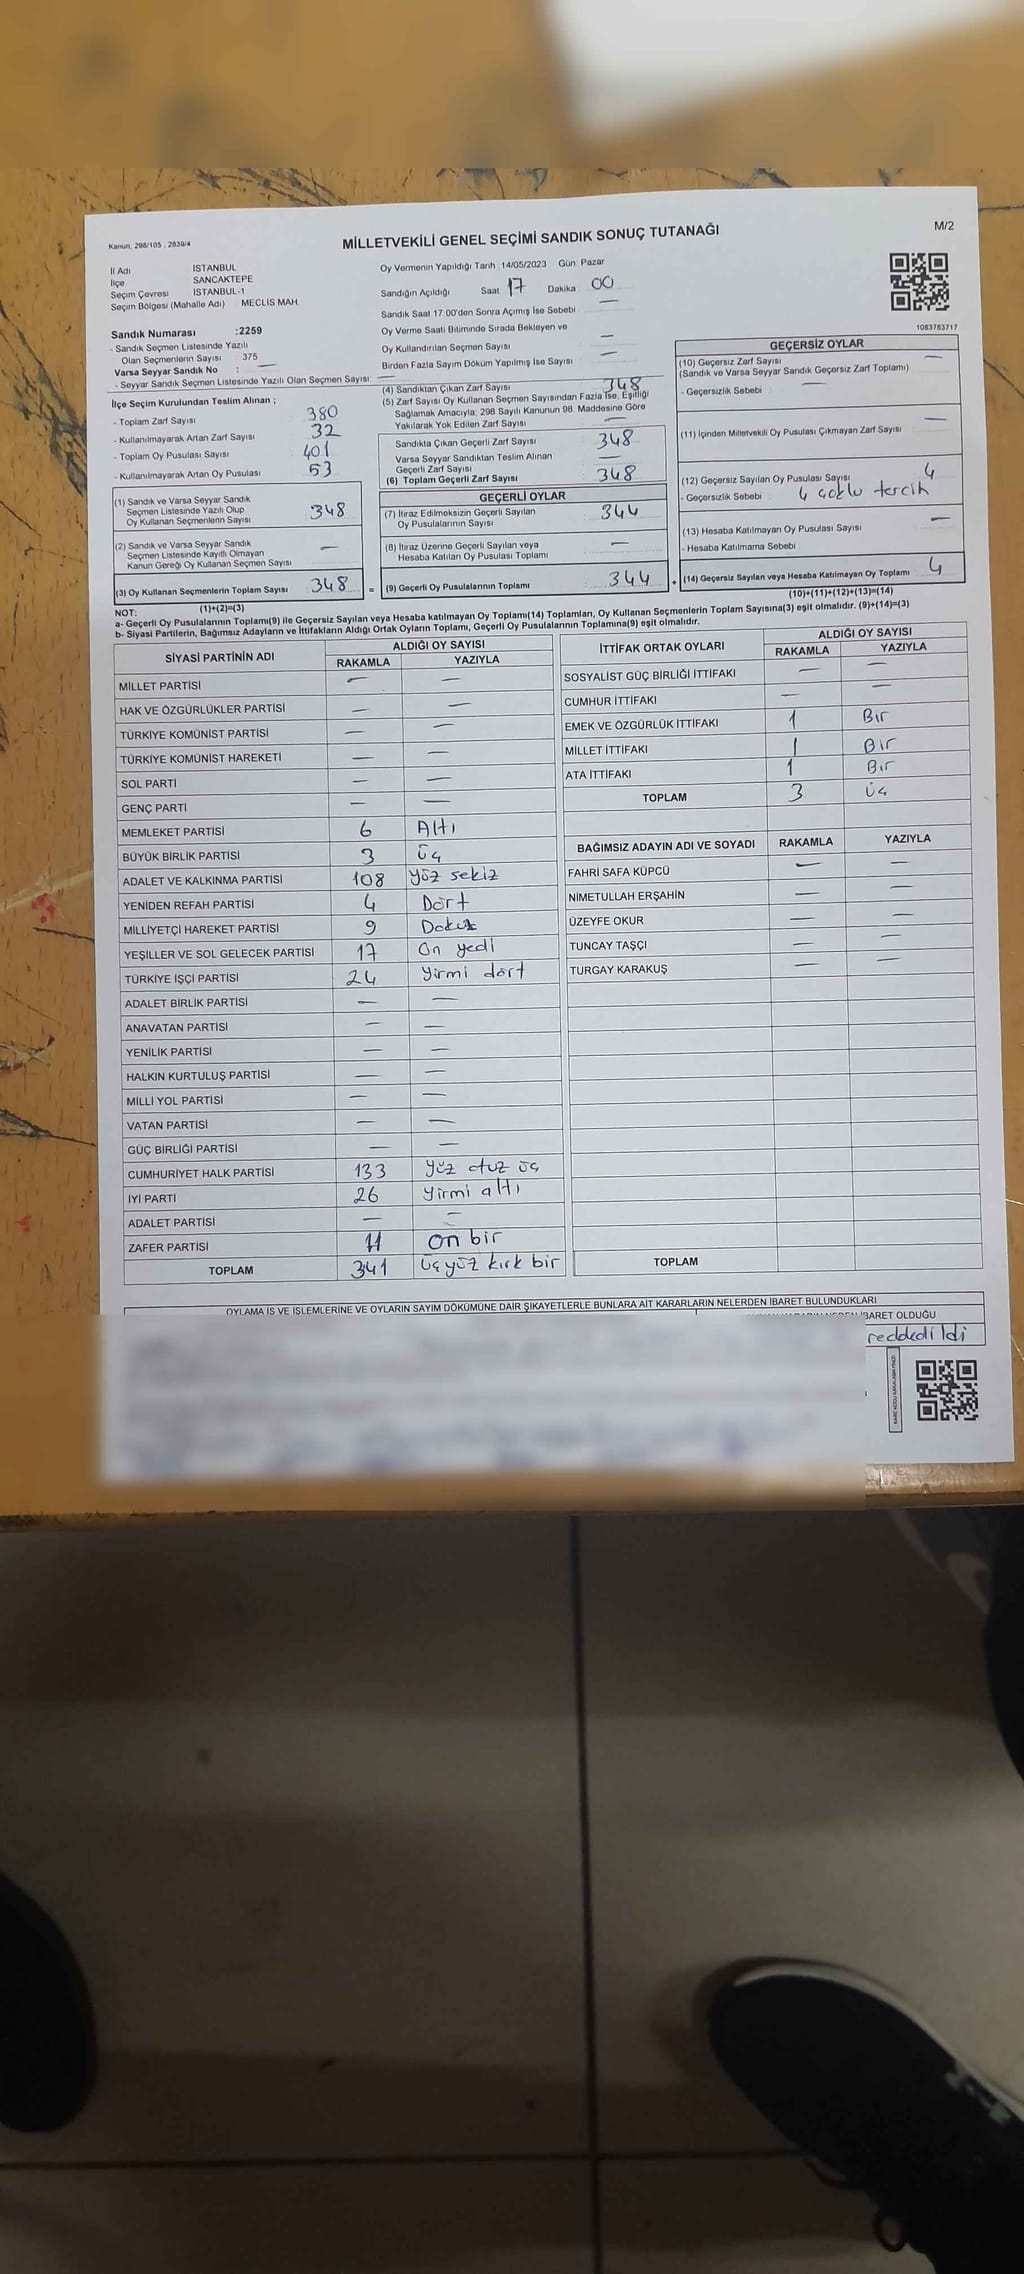 Kanun, 298/105 , 2839/4
MİLLETVEKİLİ GENEL SEÇİMİ SANDIK SONUÇ TUTANAĞI
M/2
İl Adı İSTANBUL
İlçe SANCAKTEPE
Seçim Çevresi İSTANBUL-1
Seçim Bölgesi (Mahalle Adı) MECLİS MAH.
Oy Vermenin Yapıldığı Tarih 14/05/2023 Gün Pazar
Sandığın Açıldığı Saat 17 Dakika 00
Sandık Saat 17 00'den Sonra Açılmış İse Sebebi —
Oy Verme Saati Bitiminde Sırada Bekleyen ve
Oy Kullandırılan Seçmen Sayısı —
Birden Fazla Sayım Döküm Yapılmış İse Sayısı —
1083783717
Sandık Numarası :2259
- Sandık Seçmen Listesinde Yazılı
Olan Seçmenlerin Sayısı 375
Varsa Seyyar Sandık No : —
- Seyyar Sandık Seçmen Listesinde Yazılı Olan Seçmen Sayısı —
İlçe Seçim Kurulundan Teslim Alınan ;
- Toplam Zarf Sayısı 380
- Kullanılmayarak Artan Zarf Sayısı 32
- Toplam Oy Pusulası Sayısı 401
- Kullanılmayarak Artan Oy Pusulası 53
(1) Sandık ve Varsa Seyyar Sandık
Seçmen Listesinde Yazılı Olup
Oy Kullanan Seçmenlerin Sayısı 348
(2) Sandık ve Varsa Seyyar Sandık
Seçmen Listesinde Kayıtlı Olmayan
Kanun Gereği Oy Kullanan Seçmen Sayısı —
(3) Oy Kullanan Seçmenlerin Toplam Sayısı 348 =
(1)+(2)=(3)
(4) Sandıktan Çıkan Zarf Sayısı 348
(5) Zarf Sayısı Oy Kullanan Seçmen Sayısından Fazla İse, Eşitliği
Sağlamak Amacıyla, 298 Sayılı Kanunun 98. Maddesine Göre
Yakılarak Yok Edilen Zarf Sayısı —
Sandıkta Çıkan Geçerli Zarf Sayısı 348
Varsa Seyyar Sandıktan Teslim Alınan
Geçerli Zarf Sayısı —
(6) Toplam Geçerli Zarf Sayısı 348
GEÇERLİ OYLAR
(7) İtiraz Edilmeksizin Geçerli Sayılan
Oy Pusulalarının Sayısı 344
(8) İtiraz Üzerine Geçerli Sayılan veya
Hesaba Katılan Oy Pusulası Toplamı —
(9) Geçerli Oy Pusulalarının Toplamı 344 +
GEÇERSİZ OYLAR
(10) Geçersiz Zarf Sayısı —
(Sandık ve Varsa Seyyar Sandık Geçersiz Zarf Toplamı)
- Geçersizlik Sebebi —
(11) İçinden Milletvekili Oy Pusulası Çıkmayan Zarf Sayısı —
(12) Geçersiz Sayılan Oy Pusulası Sayısı 4
- Geçersizlik Sebebi : 4 çoklu tercih
(13) Hesaba Katılmayan Oy Pusulası Sayısı —
- Hesaba Katılmama Sebebi
(14) Geçersiz Sayılan veya Hesaba Katılmayan Oy Toplamı 4
(10)+(11)+(12)+(13)=(14)
NOT:
a- Geçerli Oy Pusulalarının Toplamı(9) ile Geçersiz Sayılan veya Hesaba katılmayan Oy Toplamı(14) Toplamları, Oy Kullanan Seçmenlerin Toplam Sayısına(3) eşit olmalıdır. (9)+(14)=(3)
b- Siyasi Partilerin, Bağımsız Adayların ve İttifakların Aldığı Ortak Oyların Toplamı, Geçerli Oy Pusulalarının Toplamına(9) eşit olmalıdır.
SİYASİ PARTİNİN ADI ALDIĞI OY SAYISI
RAKAMLA YAZIYLA
MİLLET PARTİSİ — —
HAK VE ÖZGÜRLÜKLER PARTİSİ — —
TÜRKİYE KOMÜNİST PARTİSİ — —
TÜRKİYE KOMÜNİST HAREKETİ — —
SOL PARTİ — —
GENÇ PARTİ — —
MEMLEKET PARTİSİ 6 Altı
BÜYÜK BİRLİK PARTİSİ 3 Üç
ADALET VE KALKINMA PARTİSİ 108 yüz sekiz
YENİDEN REFAH PARTİSİ 4 Dört
MİLLİYETÇİ HAREKET PARTİSİ 9 Dokuz
YEŞİLLER VE SOL GELECEK PARTİSİ 17 On yedi
TÜRKİYE İŞÇİ PARTİSİ 24 yirmi dört
ADALET BİRLİK PARTİSİ — —
ANAVATAN PARTİSİ — —
YENİLİK PARTİSİ — —
HALKIN KURTULUŞ PARTİSİ — —
MİLLİ YOL PARTİSİ — —
VATAN PARTİSİ — —
GÜÇ BİRLİĞİ PARTİSİ — —
CUMHURİYET HALK PARTİSİ 133 yüz otuz üç
İYİ PARTİ 26 yirmi altı
ADALET PARTİSİ — —
ZAFER PARTİSİ 11 on bir
TOPLAM 341 üçyüz kırk bir
İTTİFAK ORTAK OYLARI ALDIĞI OY SAYISI
RAKAMLA YAZIYLA
SOSYALİST GÜÇ BİRLİĞİ İTTİFAKI — —
CUMHUR İTTİFAKI — —
EMEK VE ÖZGÜRLÜK İTTİFAKI 1 Bir
MİLLET İTTİFAKI 1 Bir
ATA İTTİFAKI 1 Bir
TOPLAM 3 Üç
BAĞIMSIZ ADAYIN ADI VE SOYADI RAKAMLA YAZIYLA
FAHRİ SAFA KÜPCÜ — —
NİMETULLAH ERŞAHİN — —
ÜZEYFE OKUR — —
TUNCAY TAŞÇI — —
TURGAY KARAKUŞ — —
TOPLAM
OYLAMA İŞ VE İŞLEMLERİNE VE OYLARIN SAYIM DÖKÜMÜNE DAİR ŞİKAYETLERLE BUNLARA AİT KARARLARIN NELERDEN İBARET BULUNDUKLARI
İBARET OLDUĞU
reddedildi